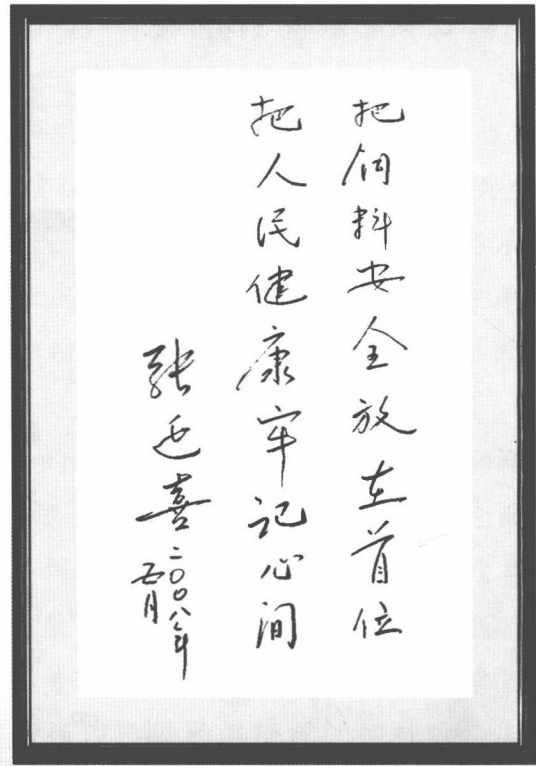 把饲料安全放在首位
把人民健康牢记心间
张延喜
二〇〇八年
五月